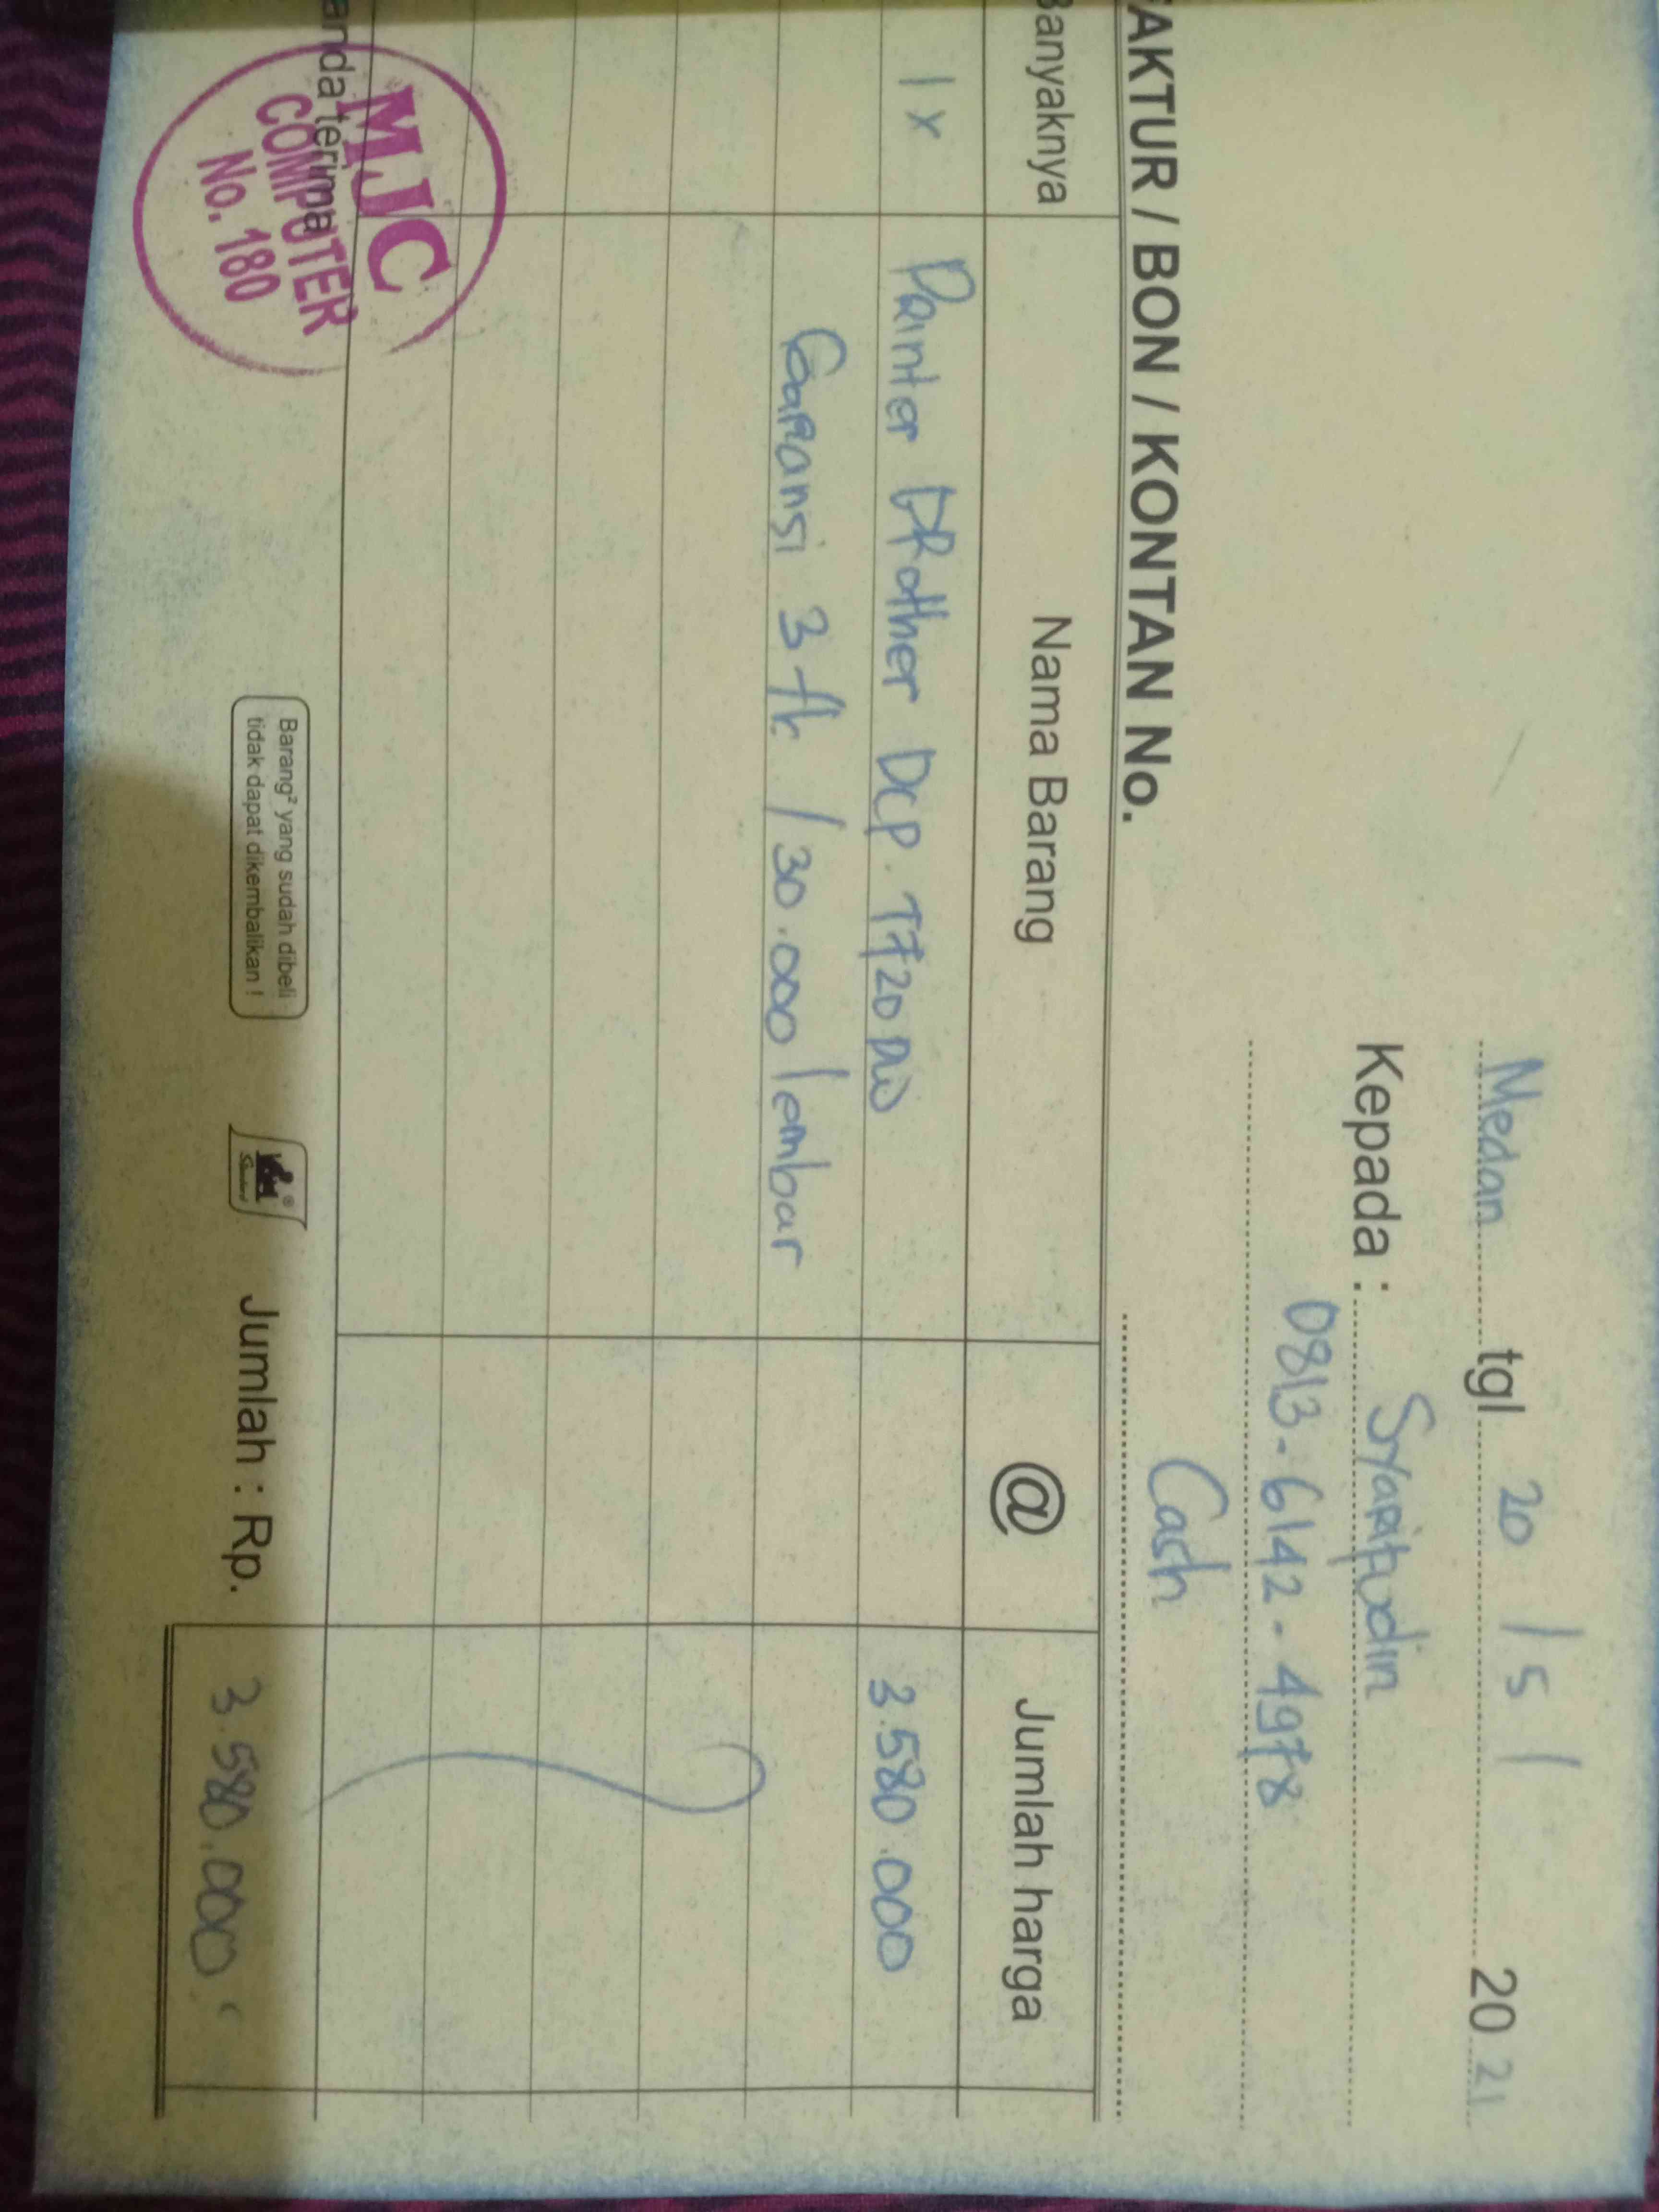 Medan tgl. 20 / 5 / 20 21
Kepada : Syarifudin
0813-6142-4978
AKTUR / BON / KONTAN No. Cash
Banyaknya Nama Barang @ Jumlah harga
1 x Printer Brother DCP. T720 DW 3.580.000
Garansi 3 th / 30.000 lembar
anda terima
MJC
COMPUTER
No. 180
Barang² yang sudah dibeli
tidak dapat dikembalikan !
Standard
Jumlah : Rp. 3.580.000